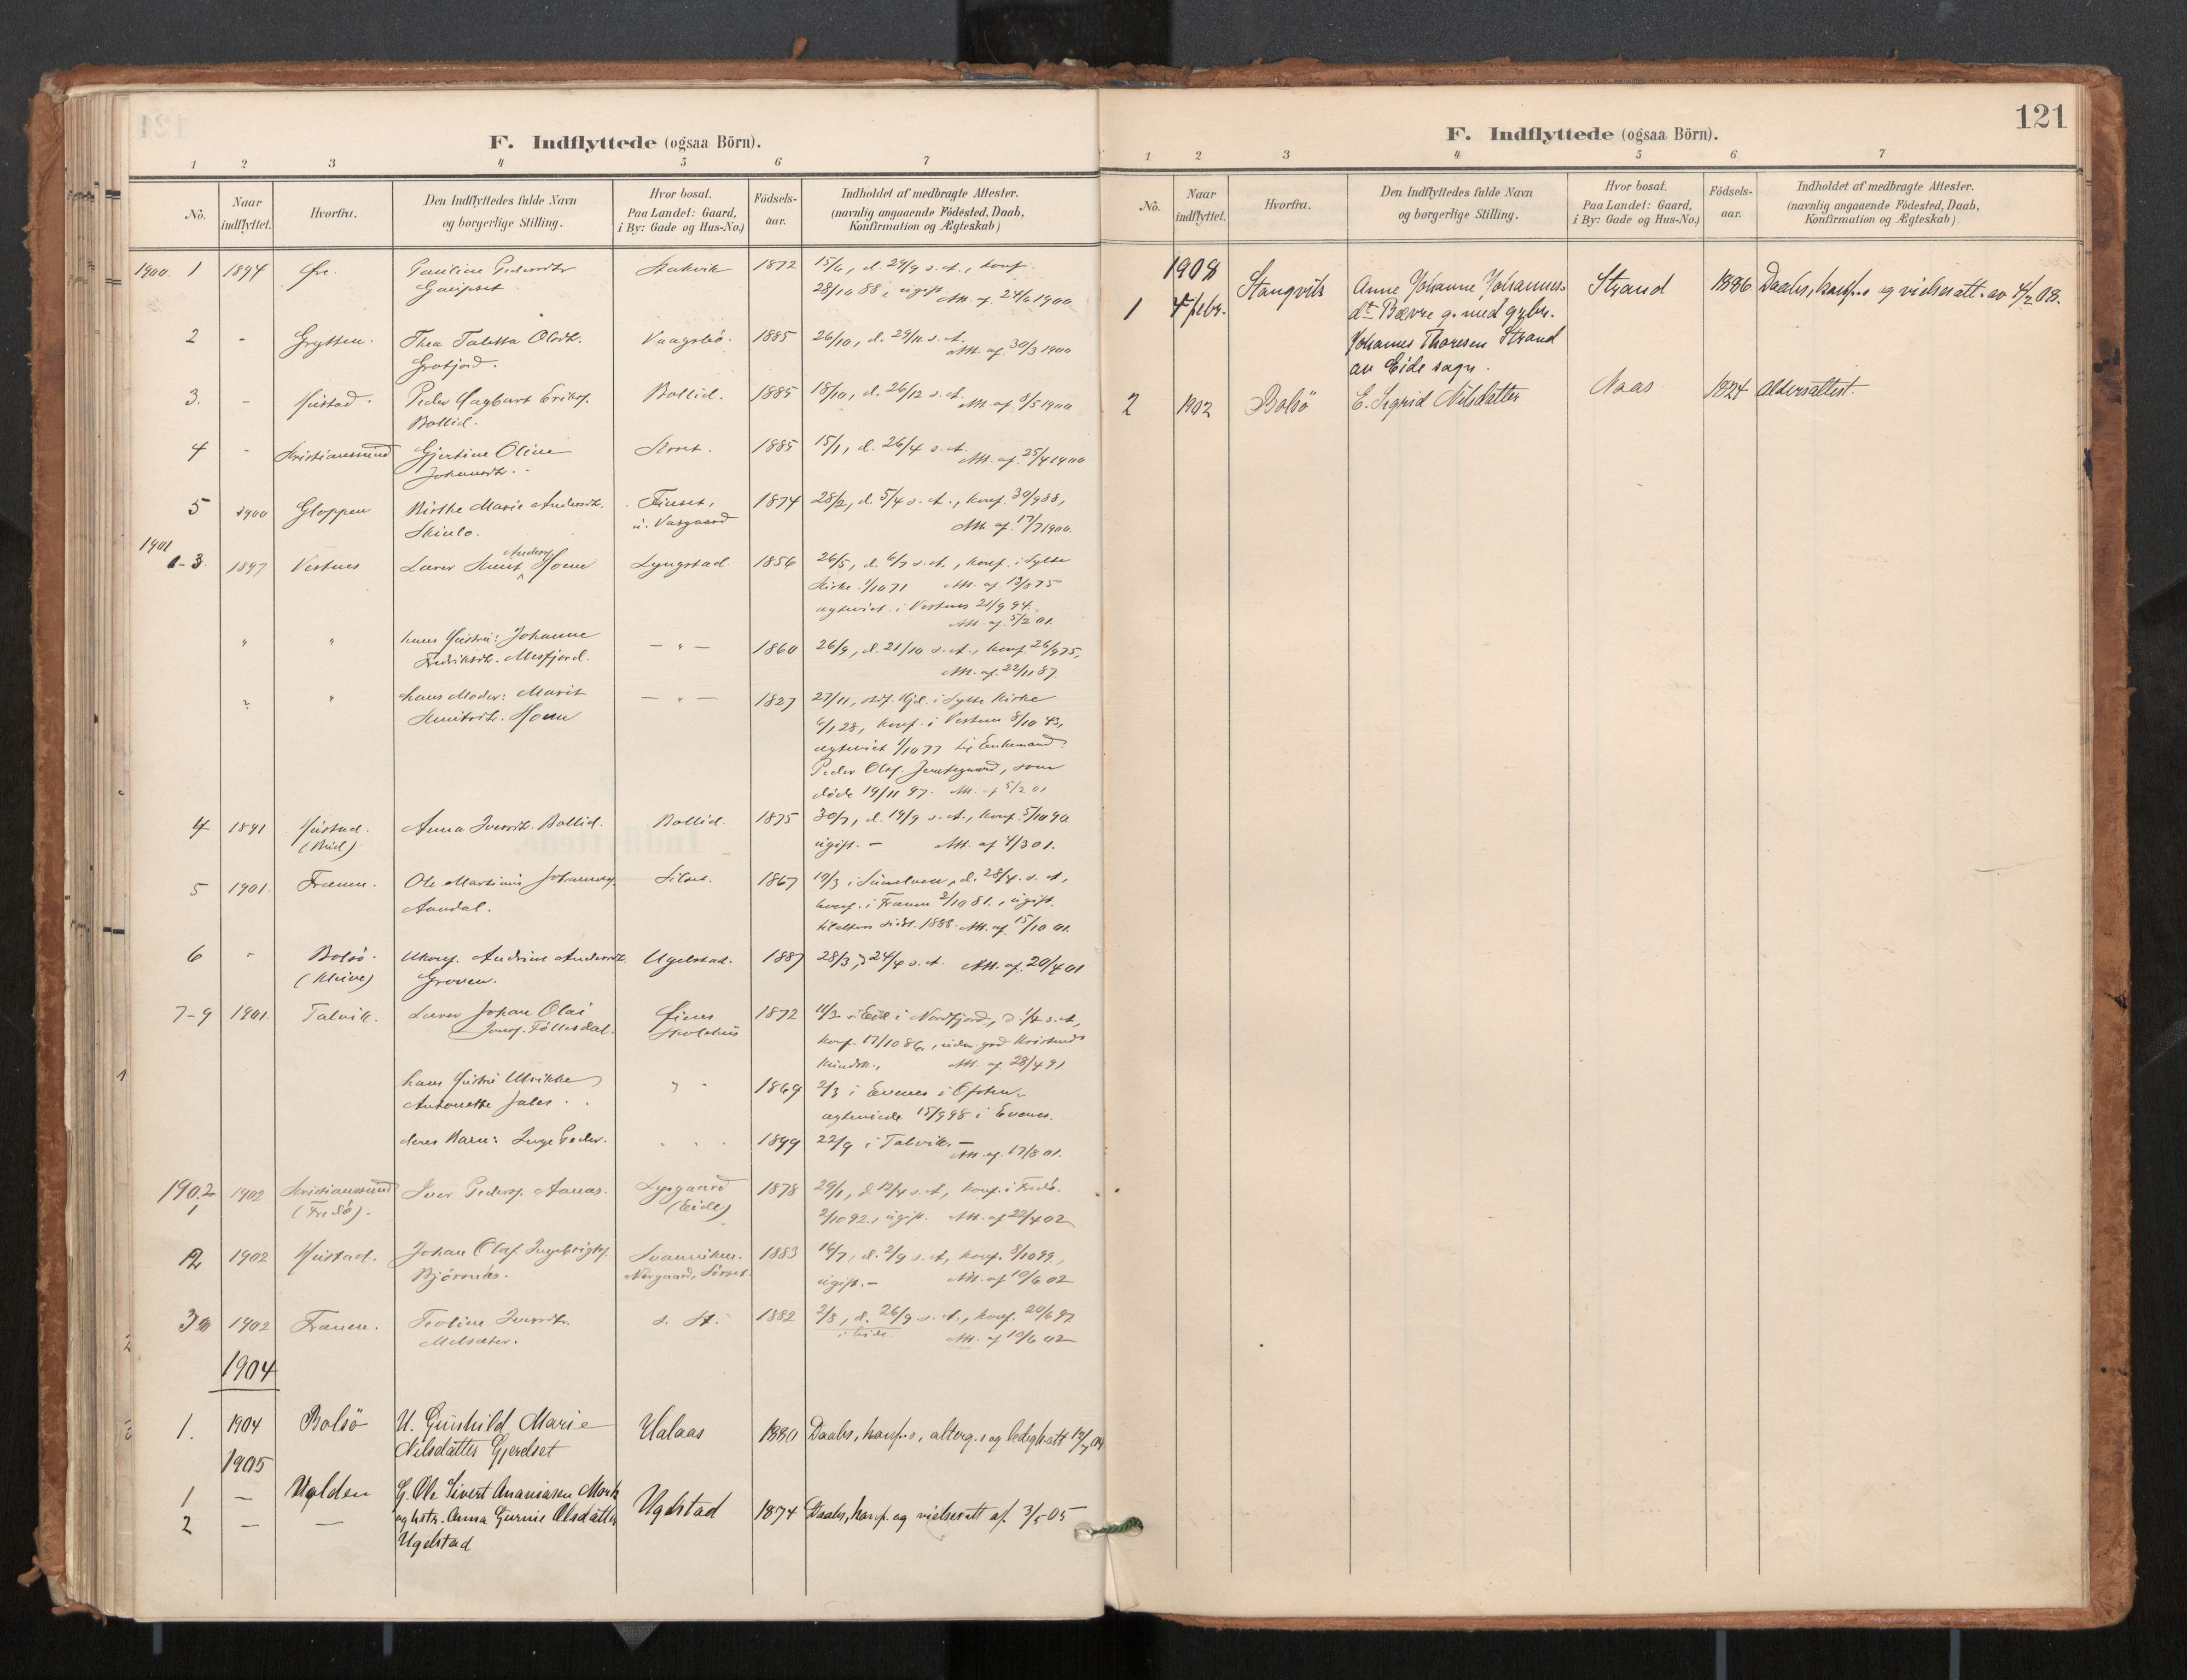 F. Indflyttede (ogsaa Börn).
1 2 3 4 5 6 7
No. Naar indflyttet. Hvorfra. Den Indflyttedes fulde Navn og borgerlige Stilling. Hvor bosat. Paa Landet: Gaard, i By: Gade og Hus-No.) Födsels-aar. Indholdet af medbragte Attester. (navnlig angaaende Födested, Daab, Konfirmation og Ægteskab)
1900. 1 1894 Pauline Pedersdtr. 1872 15/6, d. 29/9 s. A., konf.
28/10 88, ugift. Att. af 24/6 1900
2 - Grytten. Thea Oldtr. Vaagsbö. 1885 26/10, d. 29/11 s. A.
Att. af 30/3 1900
3. - Hustad. Peder Dagbart Eriks. Bollid. 1885 18/10, d. 26/12 s. A.
Bollid. Att. af 9/5 1900
4 - Kristianssund Gjertine Oline 1885 15/1, d. 26/4 s. A.
Att. af 25/4 1900
5 1900 Gloppen Birthe Marie Andersdtr. 1874 28/2, d. 5/4 s. A., konf. 30/9 88,
Att. af 17/7 1900.
1901
1-3. 1897 Vestnes Lærer Knut Anders. Lyngstad. 1856 26/5, d. 6/7 s. A., konf. i Sylte
Kirke 1/10 71 Att. af 13/8 75
ægteviet i Vestnes 21/9 94.
Att. af 5/2 01.
" " hans Hustru: Johanne — " — 1860 26/9, d. 21/10 s. A., konf. 26/9 75,
Fredriksdtr. Misfjord. Att. af 22/11 87.
" " hans Moder: Marit — " — 1827 27/11, i Sylte Kirke
Knutsdtr. 6/1 28, konf. i Vestnes 8/10 43,
ægteviet 1/10 77 Enkemand
Peder Olas. som
döde 19/11 97. Att. af 5/2 01
4 1891 Hustad. Anna Iversdtr. Bollid. Bollid. 1875 30/7, d. 19/9 s. A., konf. 5/10 90
(Bud) ugift. — Att. af 4/3 01.
5 1901. Frænen. Ole Martinus Silset. 1867 19/3 i d. 28/4 s. A.,
Aandal. konf. i Frænen 2/10 81, ugift.
sidst. 1888. Att. af 15/10 01.
6 " Bolsö. Ukonf. Andrine Andersdtr. Ugelstad. 1887 28/3, d. 24/4 s. A. Att. af 20/4 01
(Kleive) Groven.
7-9 1901. Talvik. Lærer Johan Olai 1872 i Eid i Nordfjord,
Skolehus konf. 17/10 86,
Att. af 28/4 91
hans Hustru Ulrikke 1869 2/3 i Evenes i Ofoten,
Antonette ægteviede 15/9 98 i Evenes.
deres Barn: Inge Peder. 1899 22/9 i Talvik. —
Att. af 17/8 01.
1902
1 1902 Kristianssund Iver Peders. Aanæs. Lysgaard 1878 29/1, d. 12/4 s. A., konf. i
(Eide) 2/10 92, ugift. Att. af 22/4 02
2 1902 Hustad. Johan Olaf Ingebrigts. 1883 d. 2/9 s. A., konf. 8/10 99,
Björnnæs. ugift. — Att. af 10/6 02
3 1902 Frænen. Iversdtr. s. St. 1882 2/8, d. 26/9 s. A., konf. 20/6 97
i Eide. Att. af 10/6 02
1904
1. 1904 Bolsö U. Gunhild Marie Halaas 1880 Daabs, konf.s, alterg.s og ledighatt
Nilsdatter Gjendset
1905
1 — Volden G. Ole Sivert Ananiasen Mork Ugelstad 1874 Daabs, konf. og vielsesatt af 3/5 05
2 — — og hstr. Anna Gurine Olsdatter
Ugelstad
121
F. Indflyttede (ogsaa Börn).
1 2 3 4 5 6 7
No. Naar indflyttet. Hvorfra. Den Indflyttedes fulde Navn og borgerlige Stilling. Hvor bosat. Paa Landet: Gaard, i By: Gade og Hus-No.) Födsels-aar. Indholdet af medbragte Attester. (navnlig angaaende Födested, Daab, Konfirmation og Ægteskab).
1908
1 4 febr. Stangvik Anne Johanne Johannes- Strand 1886 Daabs, konf.s og vielsesatt. av 4/2 08.
dtr Bævre g. med gbr.
Johannes Thoresen Strand
av Eide sogn.
2 1902 Bolsö E. Sigrid Nilsdatter Naas 1824 Aldersattest.